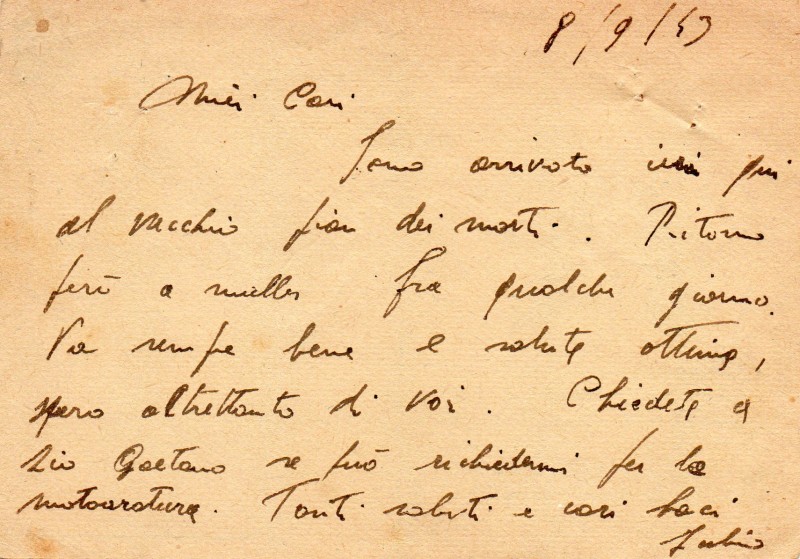 8/9/43
Miei Cari
Sono arrivato ieri qui
al vecchio pian dei morti. Ritorno
però a fra qualche giorno.
Va sempre bene e salute ottima,
spero altrettanto di voi. Chiedete a
zio Gaetano se può richiedermi per la
motoaratura. Tanti saluti e cari baci